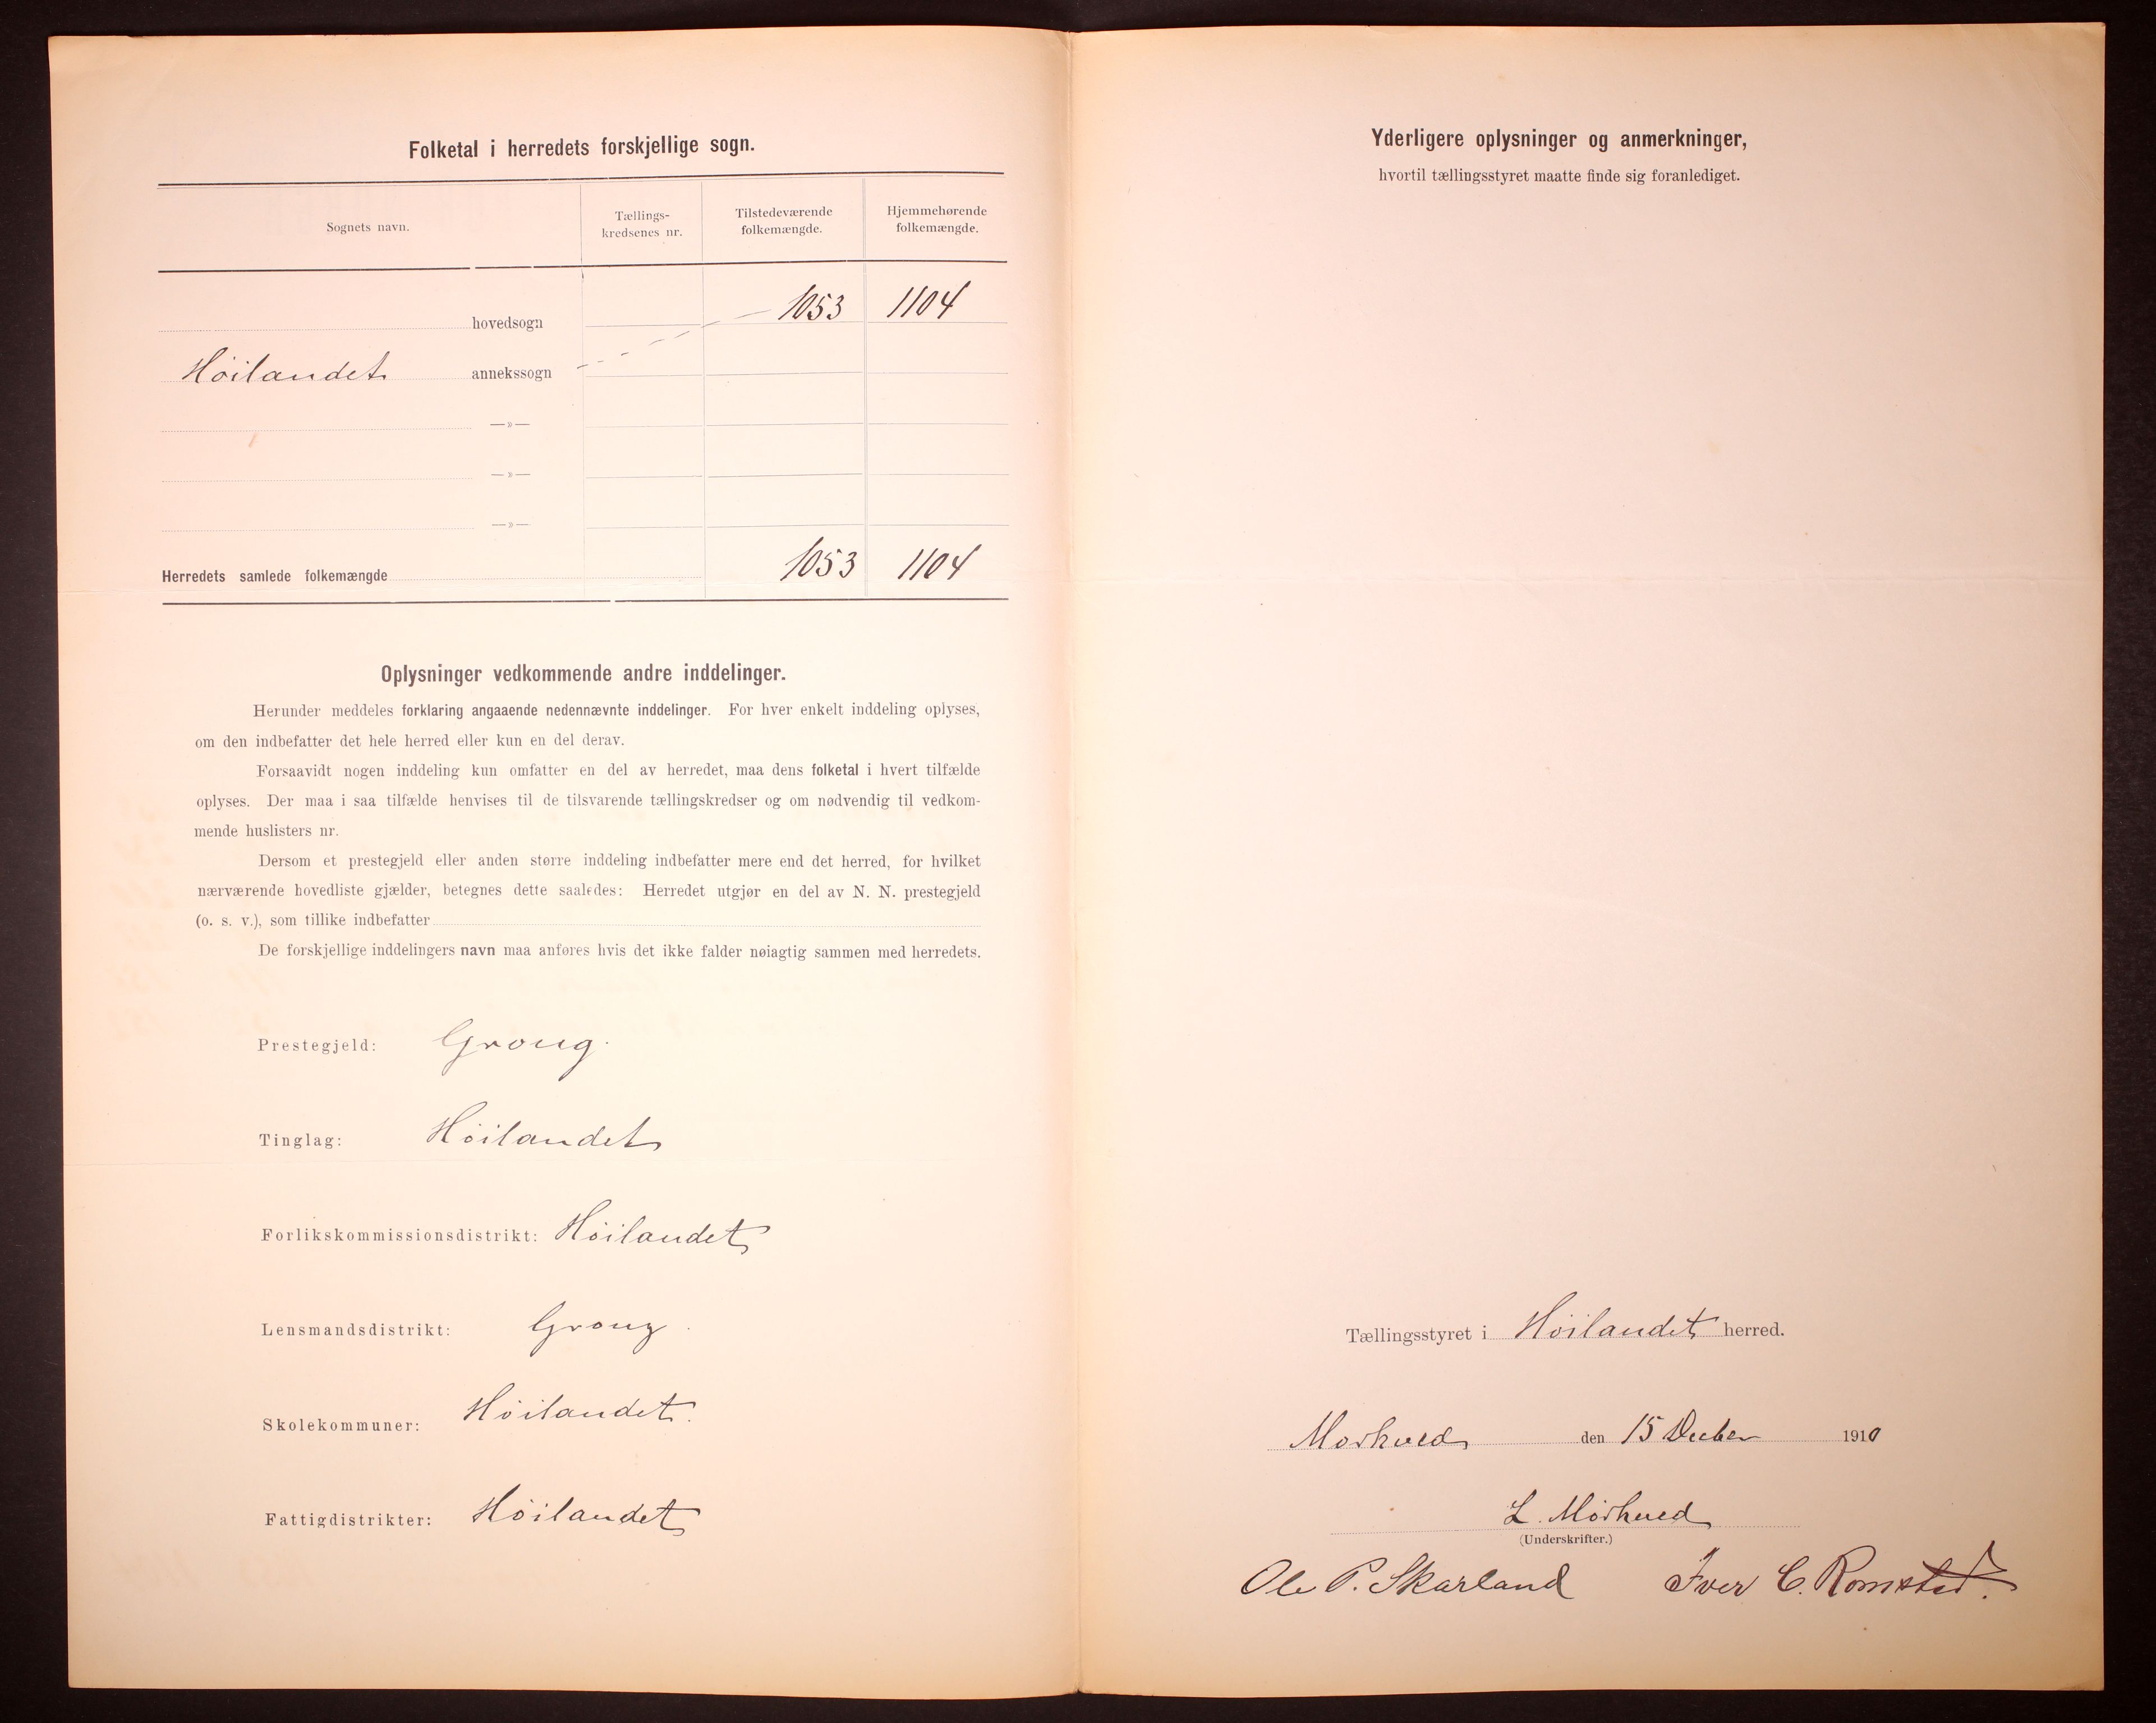 Folketal i herredets forskjellige sogn.
Sognets navn.
Tællings-
kredsenes nr.
Tilstedeværende
folkemængde.
Hjemmehørende
folkemængde.
hovedsogn 1053 1104
Höilandet annekssogn
—»—
—»—
—»—
Herredets samlede folkemængde 1053 1104
Oplysninger vedkommende andre inddelinger.
Herunder meddeles forklaring angaaende nedennævnte inddelinger. For hver enkelt inddeling oplyses,
om den indbefatter det hele herred eller kun en del derav.
Forsaavidt nogen inddeling kun omfatter en del av herredet, maa dens folketal i hvert tilfælde
oplyses. Der maa i saa tilfælde henvises til de tilsvarende tællingskredser og om nødvendig til vedkom-
mende huslisters nr.
Dersom et prestegjeld eller anden større inddeling indbefatter mere end det herred, for hvilket
nærværende hovedliste gjælder, betegnes dette saaledes: Herredet utgjør en del av N. N. prestegjeld
(o. s. v.), som tillike indbefatter
De forskjellige inddelingers navn maa anføres hvis det ikke falder nøiagtig sammen med herredets.
Prestegjeld: Grong.
Tinglag: Höilandet
Forlikskommissionsdistrikt: Höilandet
Lensmandsdistrikt: Grong.
Skolekommuner: Höilandet.
Fattigdistrikter: Höilandet
Yderligere oplysninger og anmerkninger,
hvortil tællingsstyret maatte finde sig foranlediget.
Tællingsstyret i Höilandet herred.
Mörkved den 15 Decber 1910
L. Mörkved
(Underskrifter.)
Ole P. Skarland Iver C. Romstad.